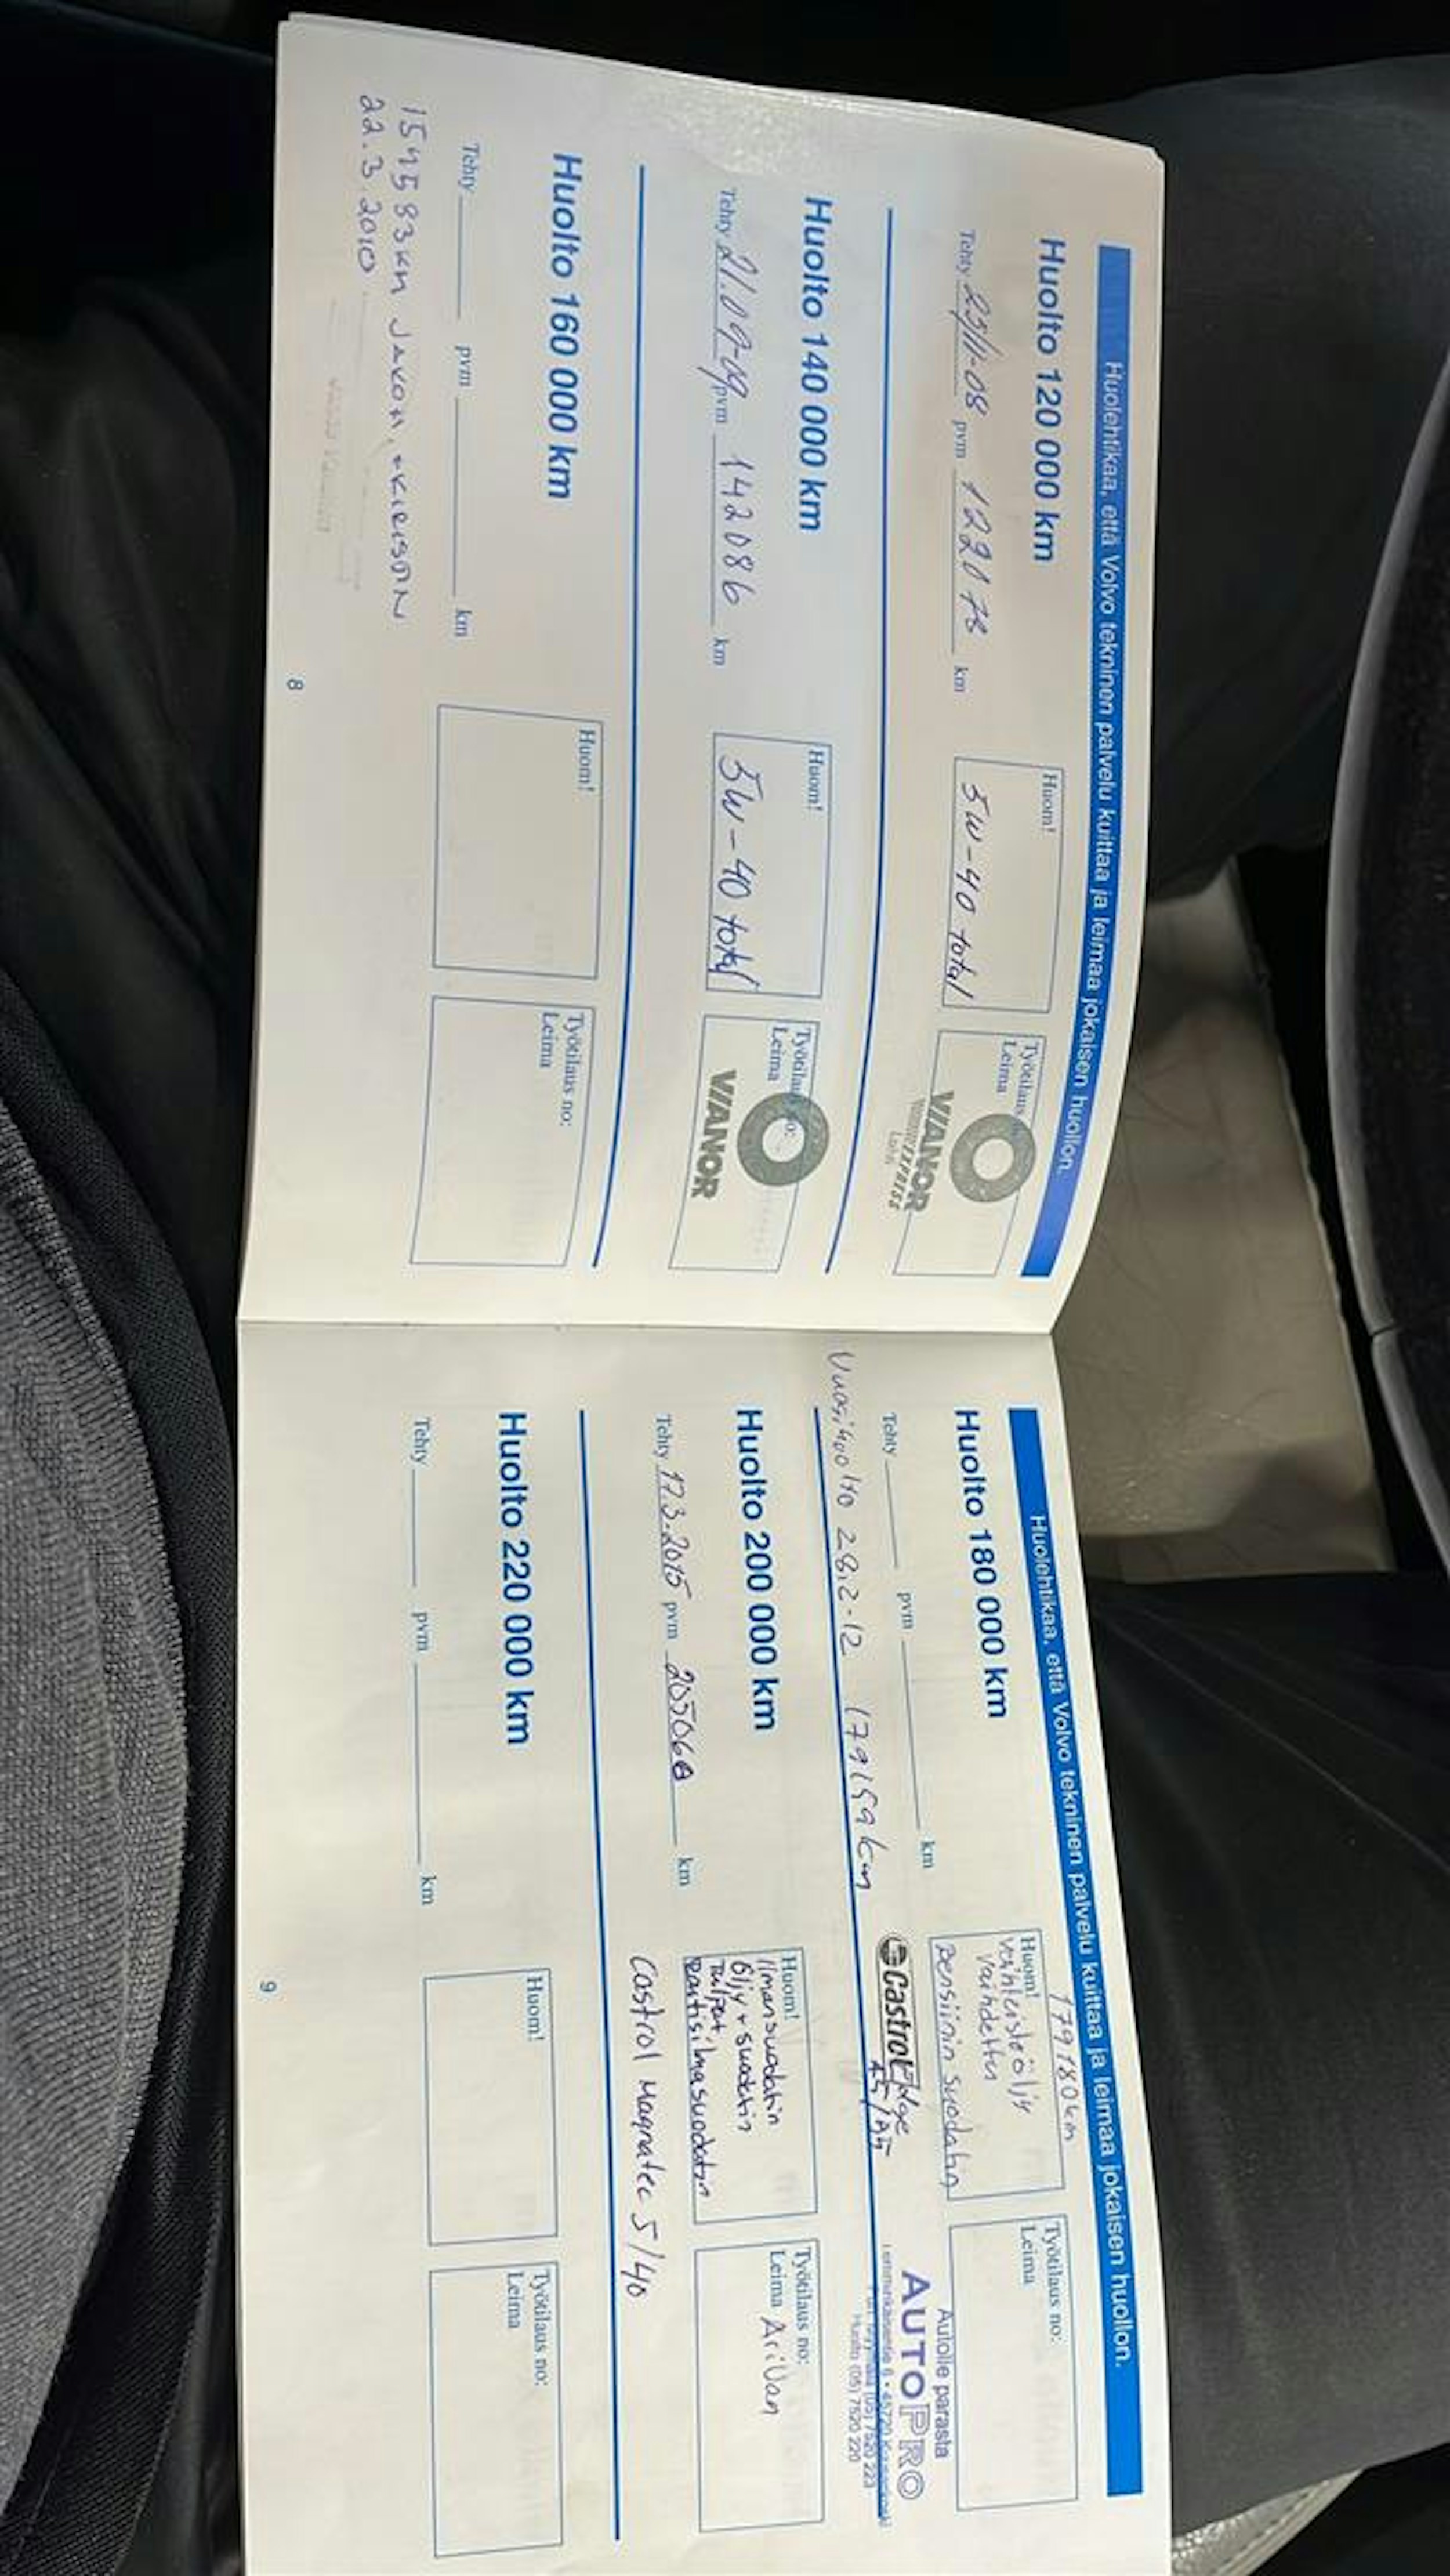 Huolehtikaa, että Volvo tekninen palvelu kuittaa ja leimaa jokaisen huollon.
Huolto 120 000 km
Tehty 25/11-08 pvm 122078 km
Huom!
5W-40 total
Työtilaus
Leima
VIANOR
EXPRESS
Lahti
Huolto 140 000 km
Tehty 21.09-09 pvm 142086 km
Huom!
5W-40 total
Työtilaus no:
Leima
VIANOR
Huolto 160 000 km
Tehty pvm km
Huom!
Työtilaus no:
Leima
154583km Jakoh,+kiristin
22.3.2010
8
Huolehtikaa, että Volvo tekninen palvelu kuittaa ja leimaa jokaisen huollon.
179180km
Huolto 180 000 km
Tehty pvm km
Huom!
Vaihteistoöljy
vaihdettu
Bensiinin suodatin
Työtilaus no:
Leima
Vuosihuolto 28.2-12 179159km
Castrol Edge
A5/B5
Autolle parasta
AUTOPRO
Lemminkäisentie 6 • 45720 Kuusankoski
(05) 7520 223
Huolto (05) 7520 220
Huolto 200 000 km
Tehty 17.3.2015 pvm 205060 km
Huom!
Ilmansuodatin
Öljy + suodatin
Tulpat,
Raitisilmasuodatin
Työtilaus no:
Leima AriVan
Castrol Magnatec 5/40
Huolto 220 000 km
Tehty pvm km
Huom!
Työtilaus no:
Leima
9